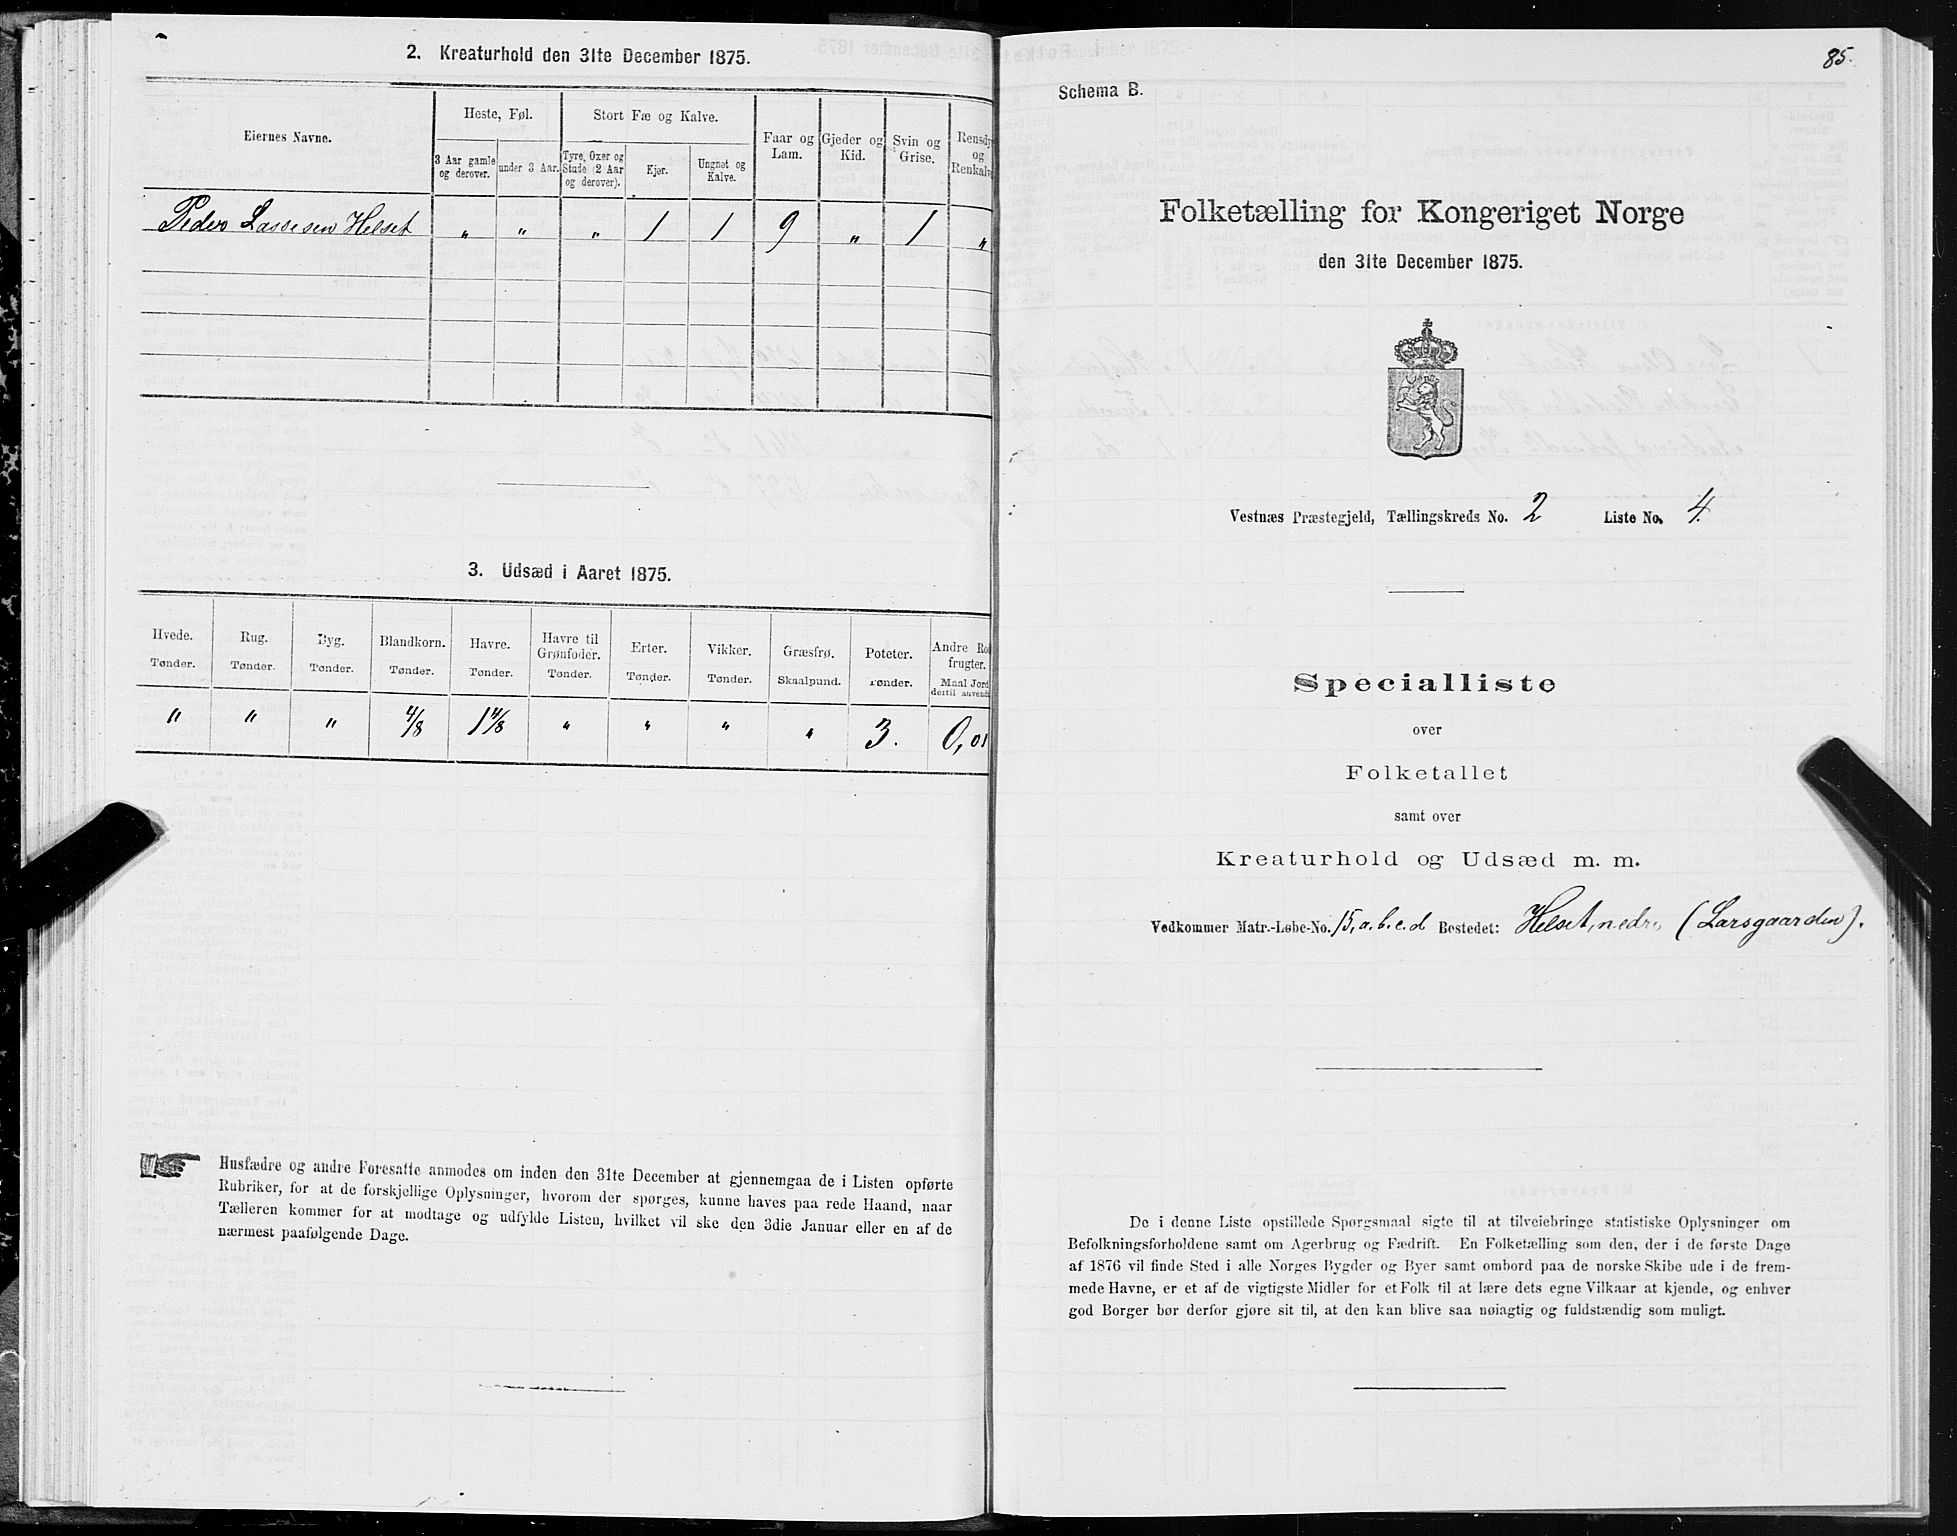 2. Kreaturhold den 31te December 1875.
Eiernes Navne.
Heste, Føl.
Stort Fæ og Kalve.
Faar og Lam.
Gjeder og Kid.
Svin og Grise.
Rensdy
og
Renkalve
3 Aar gamle og derover.
under 3 Aar.
Tyre, Oxer og Stude (2 Aar og derover).
Kjør.
Ungnøt og Kalve.
Peder Lassesen Helset " " " 1 1 9 " 1 "
3. Udsæd i Aaret 1875.
Hvede. Rug. Byg. Blandkorn. Havre. Havre til Grønfoder. Erter. Vikker. Græsfrø. Poteter. Andre Ro frugter.
Tønder. Tønder. Tønder. Tønder. Tønder. Tønder. Tønder. Tønder. Skaalpund. Tønder. Maal Jord dertil anvendt
" " " 4/8 1 4/8 " " " " 3. 0,01
Husfædre og andre Foresatte anmodes om inden den 31te December at gjennemgaa de i Listen opførte
Rubriker, for at de forskjellige Oplysninger, hvorom der spørges, kunne haves paa rede Haand, naar
Tælleren kommer for at modtage og udfylde Listen, hvilket vil ske den 3die Januar eller en af de
nærmest paafølgende Dage.
85.
Schema B.
Folketælling for Kongeriget Norge
den 31te December 1875.
Vestnæs Præstegjeld, Tællingskreds No. 2 Liste No. 4.
Specialliste
over
Folketallet
samt over
Kreaturhold og Udsæd m. m.
Vedkommer Matr.-Løbe-No. 15, a. b. c. d Bostedet: Helset, nedre (Larsgaarden).
De i denne Liste opstillede Spørgsmaal sigte til at tilveiebringe statistiske Oplysninger om
Befolkningsforholdene samt om Agerbrug og Fædrift. En Folketælling som den, der i de første Dage
af 1876 vil finde Sted i alle Norges Bygder og Byer samt ombord paa de norske Skibe ude i de frem-
mede Havne, er et af de vigtigste Midler for et Folk til at lære dets egne Vilkaar at kjende, og enhver
god Borger bør derfor gjøre sit til, at den kan blive saa nøiagtig og fuldstændig som muligt.